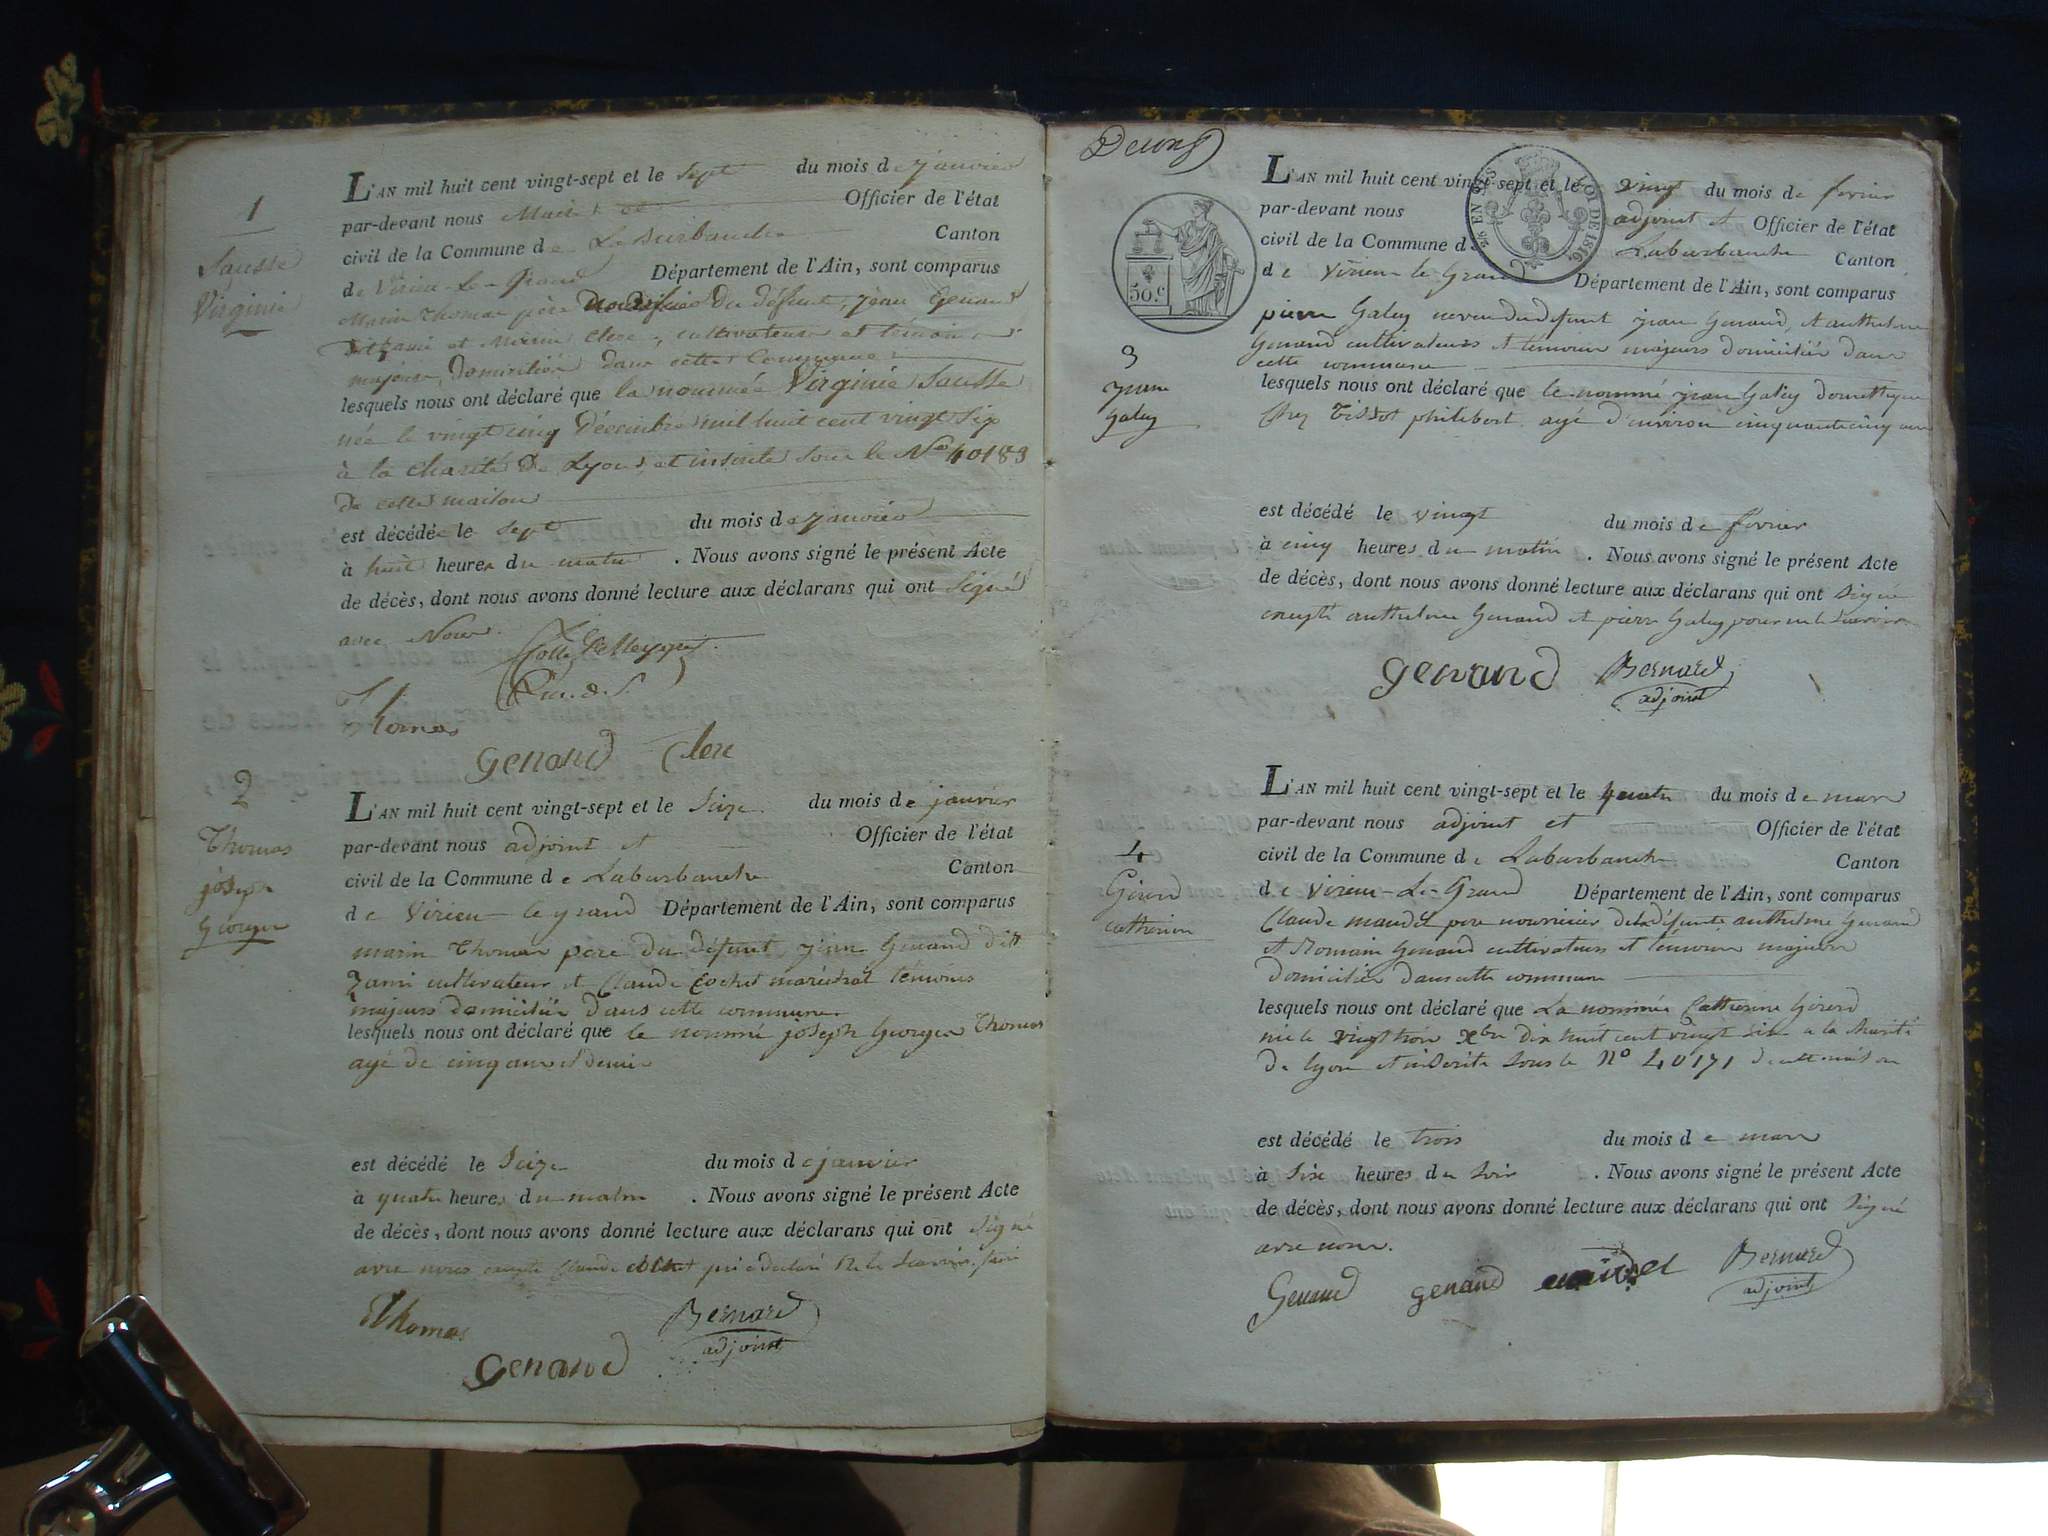 1
Sausse
Virginie
L'AN mil huit cent vingt-sept et le sept du mois de janvier
par-devant nous Maire et Officier de l'état
civil de la Commune de Laburbanche Canton
de Virieu-le-Grand Département de l'Ain, sont comparus
Marin Thomas père nourricier du défunt, jean Genand
dit Zami et Clerc, cultivateurs et témoins
majeurs, domiciliés dans cette Commune
lesquels nous ont déclaré que la nommée Virginie Sausse
née le vingt cinq Décembre mil huit cent vingt six
à la charité de Lyon, et inscrite sous le No 40183
de cette maison
est décédée le sept du mois de janvier
à huit heures du matin . Nous avons signé le présent Acte
de décès, dont nous avons donné lecture aux déclarans qui ont signé
avec Nous.
Thomas
genand Clerc
2
Thomas
joseph
Georges
L'AN mil huit cent vingt-sept et le seize du mois de janvier
par-devant nous adjoint et Officier de l'état
civil de la Commune de Laburbanche Canton
de Virieu-le grand Département de l'Ain, sont comparus
marin Thomas pere du défunt, jean Genand dit
Zami cultivateur et Claude Cochet maréchal témoins
majeurs domiciliés dans cette commune
lesquels nous ont déclaré que le nommé joseph Georges Thomas
agé de cinq ans et demie
est décédé le seize du mois de janvier
à quatre heures du matin . Nous avons signé le présent Acte
de décès, dont nous avons donné lecture aux déclarans qui ont signé
avec nous excepté Claude Cochet qui a déclaré ne le savoir faire
Thomas
Bernard
adjoint
genand
50.c
EN SUS
LOI DE 1816
3
jean
Galey
L'AN mil huit cent vingt-sept et le vingt du mois de fevrier
par-devant nous adjoint et Officier de l'état
civil de la Commune de Laburbanche Canton
de Virieu-le-Grand Département de l'Ain, sont comparus
pierre Galey neveu du defunt jean Genand, et anthelme
Genand cultivateurs et temoins majeurs domiciliés dans
cette commune
lesquels nous ont déclaré que le nommé jean Galey domestique
chez Tissot philibert agé d'environ cinquante cinq ans
est décédé le vingt du mois de fevrier
à cinq heures du matin . Nous avons signé le présent Acte
de décès, dont nous avons donné lecture aux déclarans qui ont signé
excepté anthelme Genand et pierre Galey pour ne le savoir
genand Bernard
adjoint
4
Girard
catherine
L'AN mil huit cent vingt-sept et le quatre du mois de mars
par-devant nous adjoint et Officier de l'état
civil de la Commune de Laburbanche Canton
de Virieu-Le-Grand Département de l'Ain, sont comparus
Claude maudet pere nourricier de la défunte anthelme Genand
et Romain Genand cultivateurs et temoins majeurs
domiciliés dans cette commune
lesquels nous ont déclaré que La nommée Catherine Girard
née le vingt trois Xbre dix huit cent vingt six a la charité
de lyon et inscrite sous le No 40171 de cette maison
est décédé le trois du mois de mars
à six heures du soir . Nous avons signé le présent Acte
de décès, dont nous avons donné lecture aux déclarans qui ont signé
avec nous.
Genand genand maudet Bernard
adjoint